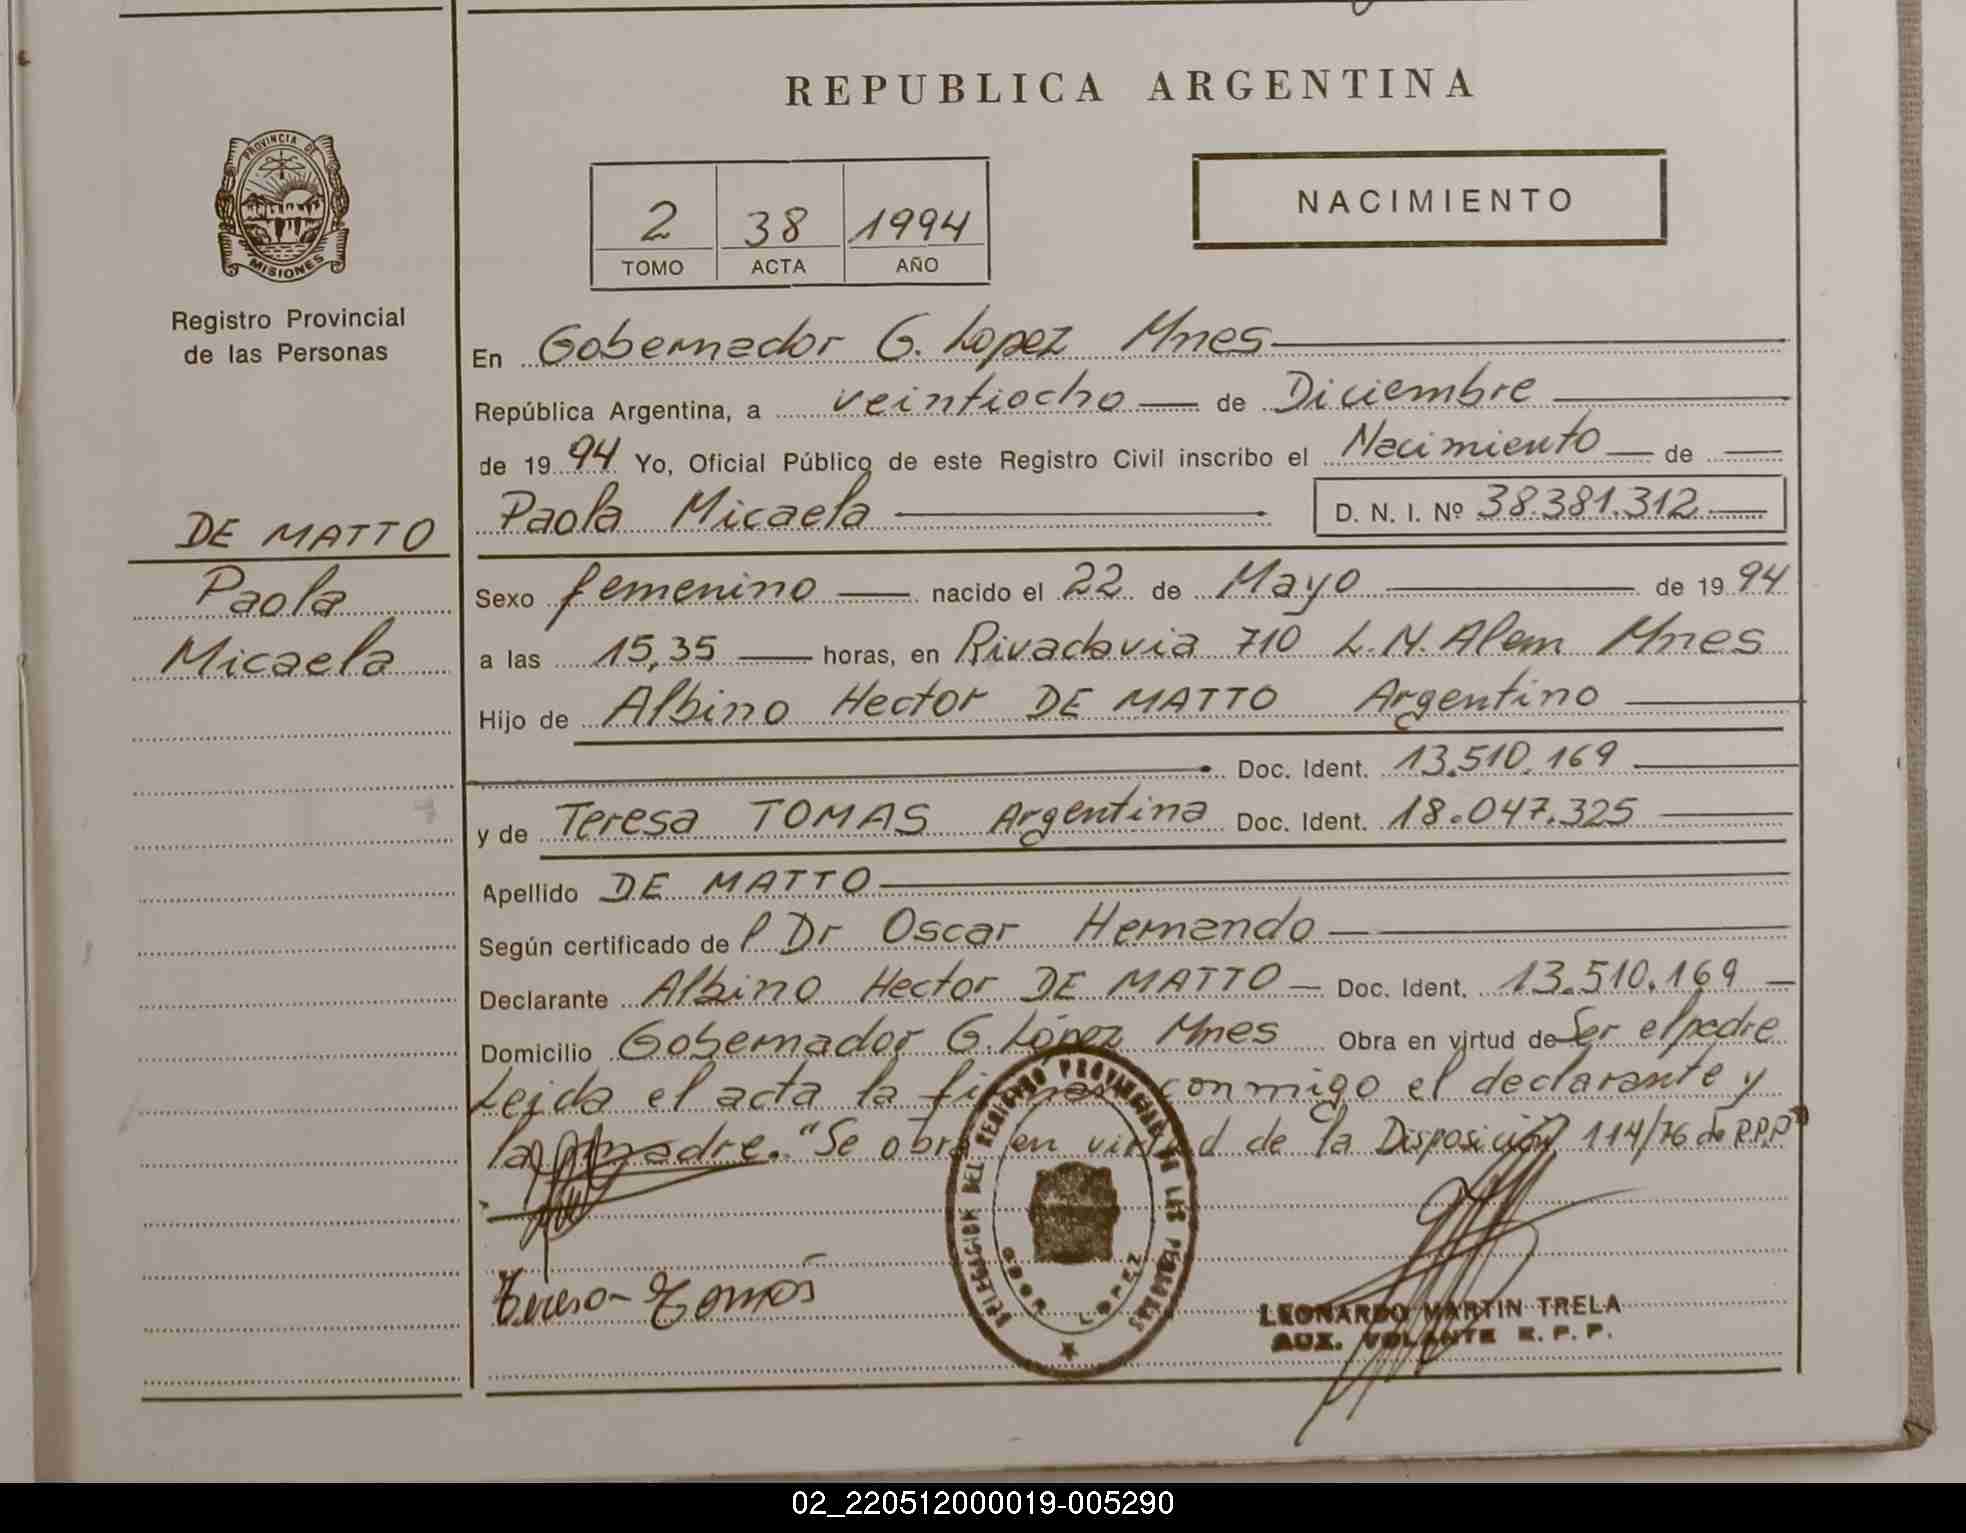 REPUBLICA ARGENTINA
PROVINCIA DE
MISIONES
Registro Provincial
de las Personas
2 38 1994
TOMO ACTA AÑO
NACIMIENTO
En Gobernador G. Lopez Mnes
República Argentina, a veintiocho de Diciembre
de 1994 Yo, Oficial Público de este Registro Civil inscribo el Nacimiento de
Paola Micaela D. N. I. Nº 38.381.312
DE MATTO
Paola
Micaela
Sexo femenino nacido el 22 de Mayo de 1994
a las 15,35 horas, en Rivadavia 710 L.N. Alem Mnes
Hijo de Albino Hector DE MATTO Argentino
Doc. Ident. 13.510.169
y de Teresa TOMAS Argentina Doc. Ident. 18.047.325
Apellido DE MATTO
Según certificado de P Dr Oscar Hernando
Declarante Albino Hector DE MATTO Doc. Ident. 13.510.169
Domicilio Gobernador G. López Mnes Obra en virtud de Ser el padre
Leida el acta la firman conmigo el declarante y
la madre. "Se obra en virtud de la Disposición 114/76 de R.P.P"
DELEGACION DEL REGISTRO PROVINCIAL DE LAS PERSONAS
GDOR. LOPEZ
Teresa Tomás
LEONARDO MARTIN TRELA
AUX. VOLANTE R. P. P.
02_220512000019-005290